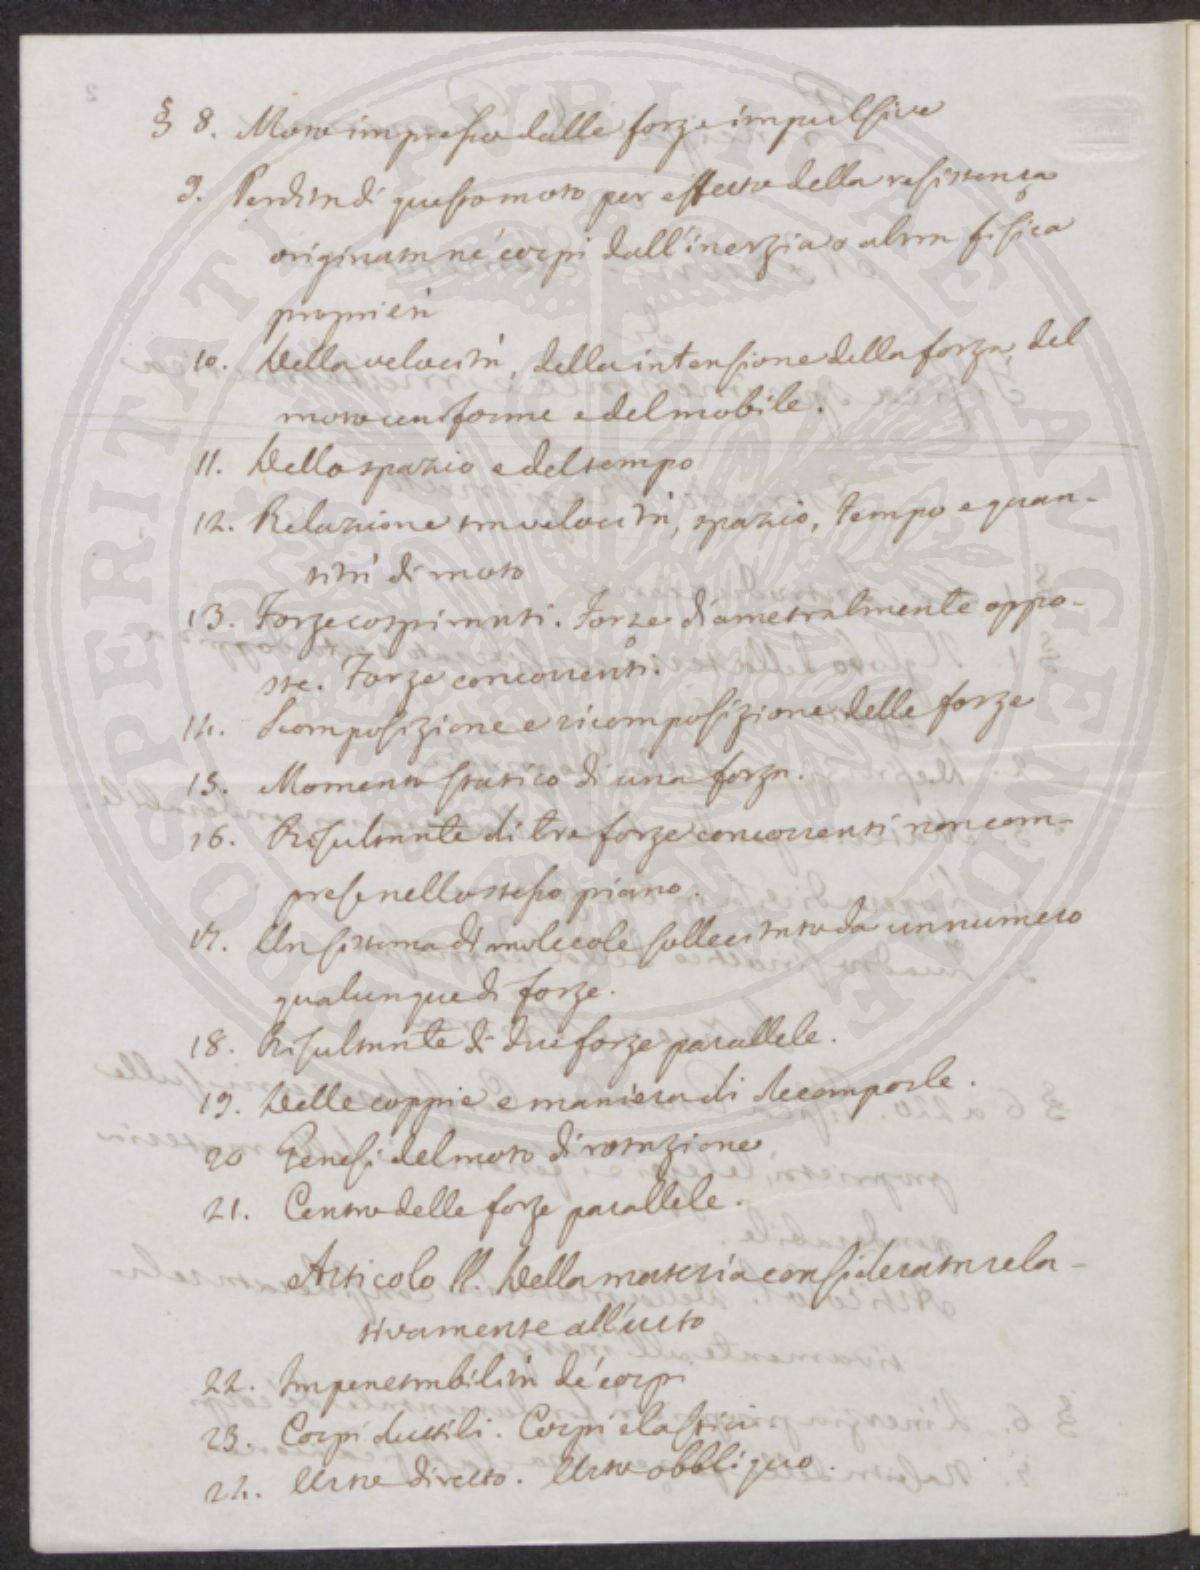 § 8. Moto impresso dalle forze impulsive
9. Perdita di questo moto per effetto della resistenza
originata ne' corpi dall'inerzia o altra fisica
proprietà
10. Della velocità, della intensione della forza, del
moto uniforme e del mobile.
11. Dello spazio e del tempo
12. Relazione tra velocità, spazio, tempo e quan-
tità di moto
13. Forze cospiranti. Forze diametralmente oppo-
ste. Forze concorrenti.
14. Scomposizione e ricomposizione delle forze
15. Momento statico di una forza.
16. Risultante di tre forze concorrenti non com-
prese nello stesso piano.
17. Un sistema di molecole sollecitato da un numero
qualunque di forze.
18. Risultante di due forze parallele.
19. Delle coppie e maniera di decomporle.
20 Genesi del moto di rotazione
21. Centro delle forze parallele.
Articolo II. Della materia considerata rela-
tivamente all'urto
22. Impenetrabilità de' corpi
23. Corpi duttili. Corpi elastici
24. Urto diretto. Urto obbliquo.
PROSPERITATI PUBLICAE AUGENDAE